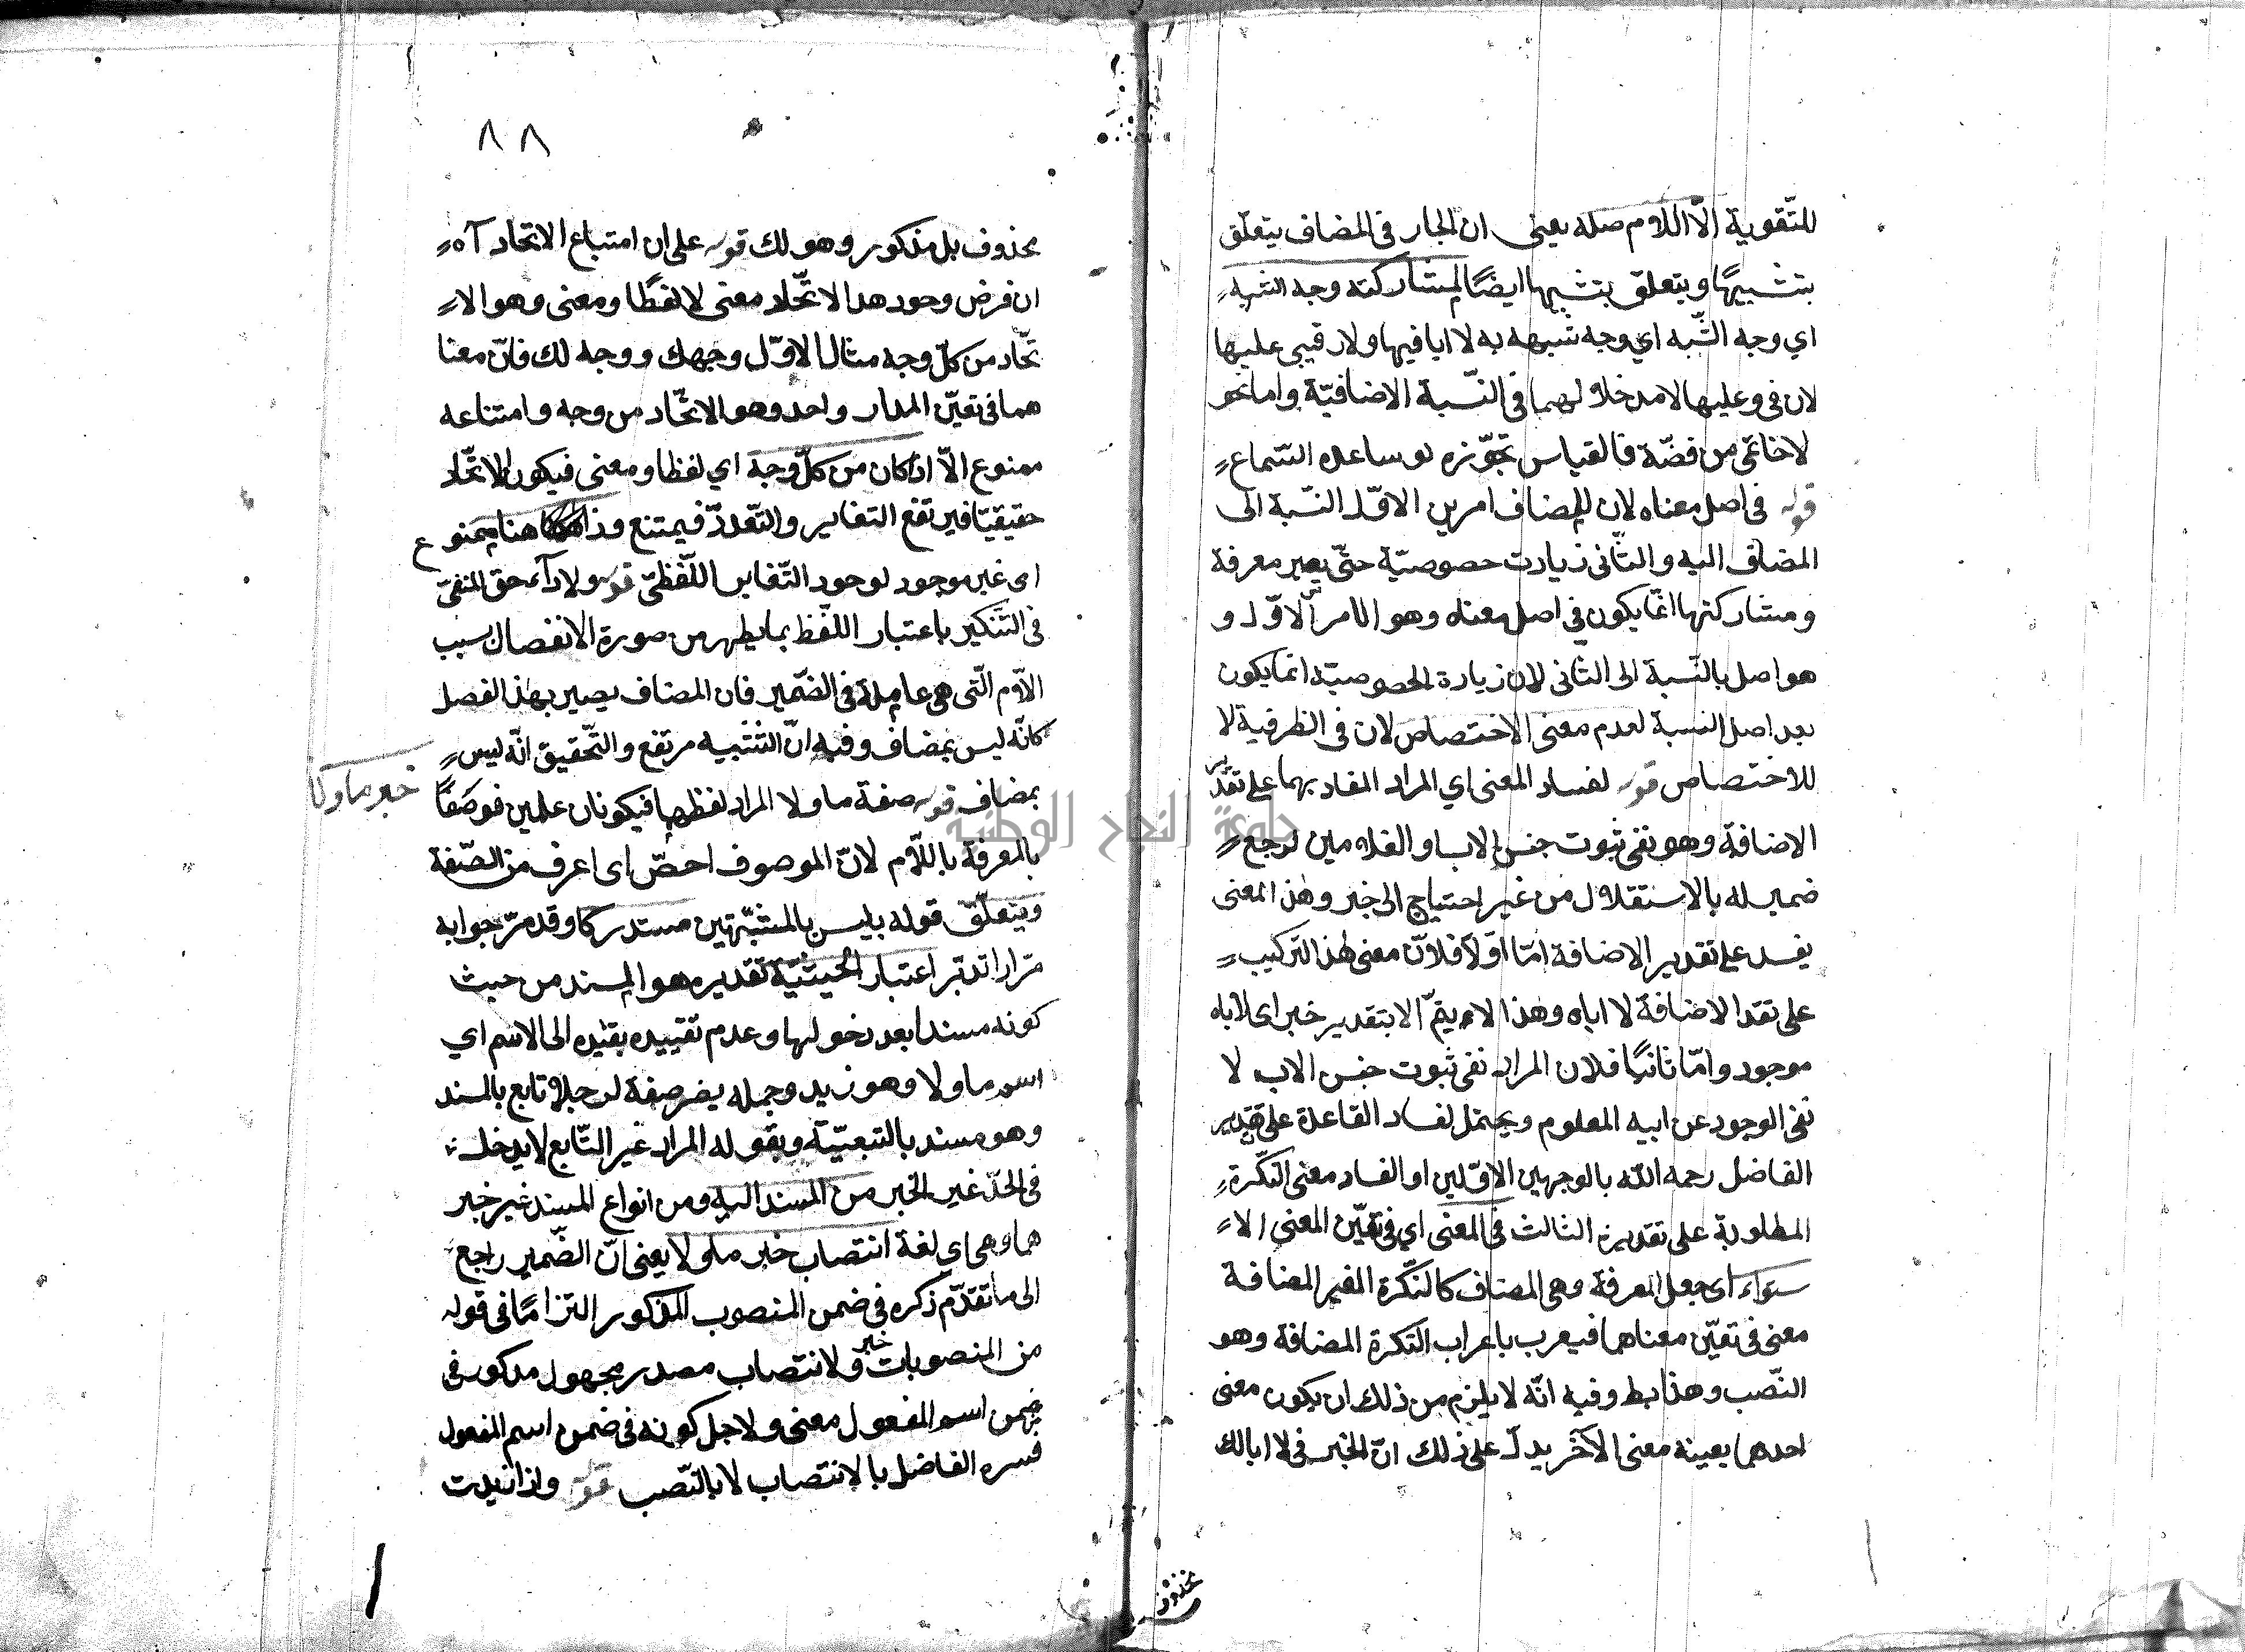 للتّقوية الّا اللام صله يعنى ان الجار فى المضاف يتعلّق
بتشبيهًا ويتعلّق بتشبيها ايضًا لمشاركته وجه الشبه
اي وجه الشّبه اي وجه شبهه به لا ابا فيها ولا رقيبى عليها
لان فى وعليها لا مدخلا لهما فى النّسبة الاضافيّة واما نحو
لا خاتمى من فضّة فالقياس تجوّزه لو ساعده السّماع
قوله فى اصل معناه لان للمضاف امرين الاوّل النّسبة الى
المضاف اليه والثّانى زيادت خصوصيّة حتّى يصير معرفة
ومشاركتها انّما يكون فى اصل معناه وهو الامر الاوّل و
هو اصل بالنّسبة الى الثّانى لان زيادة الخصوصيّة انما يكون
بعد اصل النسبة لعدم معنى الاختصاص لان فى الظرفية لا
للاختصاص قوله لفساد المعنى اي المراد المفاد بهما على تقدير
الاضافة وهو نفى ثبوت جنس الاب او الغلامين لرجع
ضمير له بالاستقلال من غير احتياج الى خبر وهذا المعنى
يفسد على تقدير الاضافة امّا اوّلا فلانّ معنى هذا التركيب
على تقد الاضافة لا اباه وهذا لا يتمّ الا بتقدير خبر اى لا اباه
موجود وامّا ثانيًا فلان المراد نفى ثبوت جنس الاب لا
نفى الوجود عن ابيه المعلوم ويحتمل لفساد القاعدة على تقدير
الفاضل رحمه اللّه بالوجهين الاوّلين او الفساد معنى النّكرة
المطلوبة على تقديره الثالث فى المعنى اي فى تعيّن المعنى الا
سواء اى جعل المعرفة وهى المضاف كالنّكرة الغير المضافة
معنى فى تعيّن معناهما فيعرب باعراب النّكرة المضافة وهو
النّصب وهذا بط وفيه انّه لا يلزم من ذلك ان يكون معنى
احدهما بعينه معنى الآخر يدلّ على ذلك انّ الخبر فى لا ابا لك
محذوف
٨٨
محذوف بل مذكور وهو لك قوله على ان امتباع الاتحاد آه
ان فرض وجود هدا الاتّحاد معنى لا لفظًا ومعنى وهو الا
تّحاد من كلّ وجه مثال الاوّل وجهك ووجه لك فانّ معنا
هما فى تعيّن المدار واحد وهو الاتّحاد من وجه وامتناعه
ممنوع الّا اذا كان من كلّ وجه اي لفظا ومعنى فيكون الاتّحاد
حقيقيّا فيرتفع التغاير والتّعدد فيمتنع وذا هنا ممنوع
اى غير موجود لوجود التّغاير اللّفظىّ قوله ولا دآء حق المنفىّ
فى التّنكير باعتبار اللّفظ بما يظهر من صورة الانفصال بسبب
الاّوم الّتى هى عاملة فى الضّمير فان المضاف يصير بهذا الفصل
كانّه ليس بمضاف وفيه انّ التنبيه مرتفع والتّحقيق انّه ليس
بمضاف قوله صفة ما ولا المراد لفظهما فيكونان علمين فوصَفًا
خبر ما ولا
بالمعرفة باللّام لانّ الموصوف احصّ اى اعرف من الصّفة
ويتعلّق قوله بليس بالمشبّهتين مستدركا وقد مرّ جوابه
مّرارا تدبّر اعتبار الحيثيّة تقديره هو المسند من حيث
كونه مسندا بعد دخولها وعدم تقييده بقيده الى الاسم اي
اسم ما ولا وهو زيد وجمله يضر صفة لرجلا تابع بالمسند
وهو مسند بالتبعيّة وبقوله المراد غير التّابع لا يدخل
فى الحدّ غير الخبر من المسند اليه ومن انواع المسند غير خبر
هما وهى اي لغة انتصاب خبر ما ولا يعنى انّ الضّمير راجع
الى ما تقدّم ذكره فى ضمن المنصوب المذكور التزامًا فى قوله
من المنصوبات خبر ولا نتصاب مصدر مجهول مدكور فى
ضمن اسم المفعول معنى ولاجل كونه فى ضمن اسم المفعول
فسره الفاضل بالانتصاب لا بالنّصب قوله واذا زيدت
جامعة النجاح الوطنية